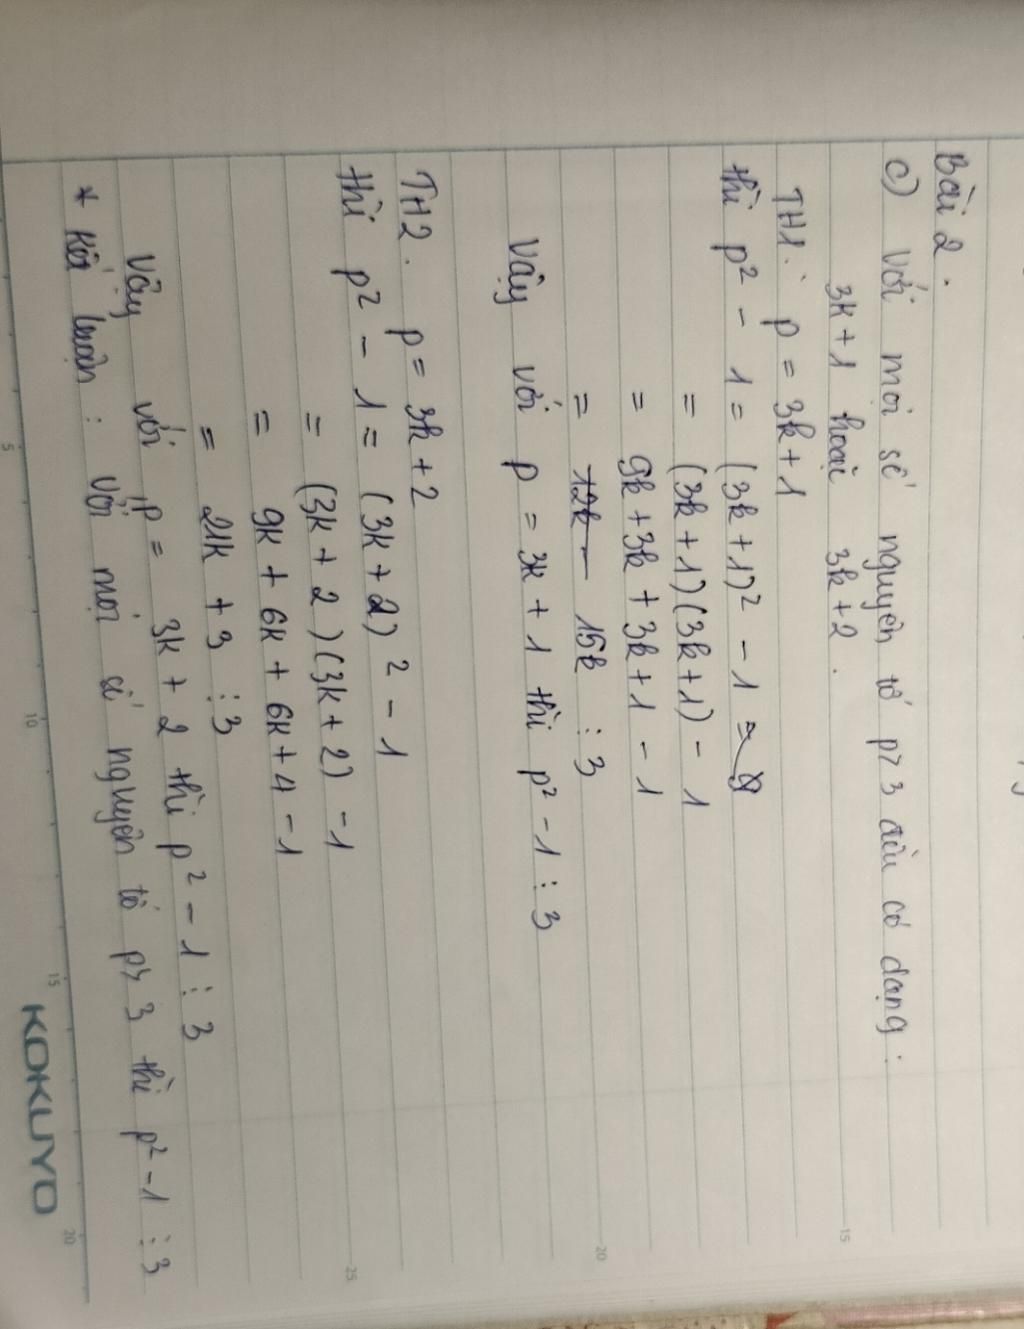 Bài 2.
c) Với mọi số nguyên tố p > 3 đều có dạng:
3k + 1 hoặc 3k + 2.
TH1: p = 3k + 1
thì p² - 1 = (3k + 1)² - 1
= (3k + 1)(3k + 1) - 1
= 9k + 3k + 3k + 1 - 1
= 12k 15k ⋮ 3
Vậy với p = 3k + 1 thì p² - 1 ⋮ 3
TH2. p = 3k + 2
thì p² - 1 = (3k + 2)² - 1
= (3k + 2)(3k + 2) - 1
= 9k + 6k + 6k + 4 - 1
= 21k + 3 ⋮ 3
Vậy với p = 3k + 2 thì p² - 1 ⋮ 3
* Kết luận: Với mọi số nguyên tố p > 3 thì p² - 1 ⋮ 3
KOKUYO
5
10
15
20
15
20
25